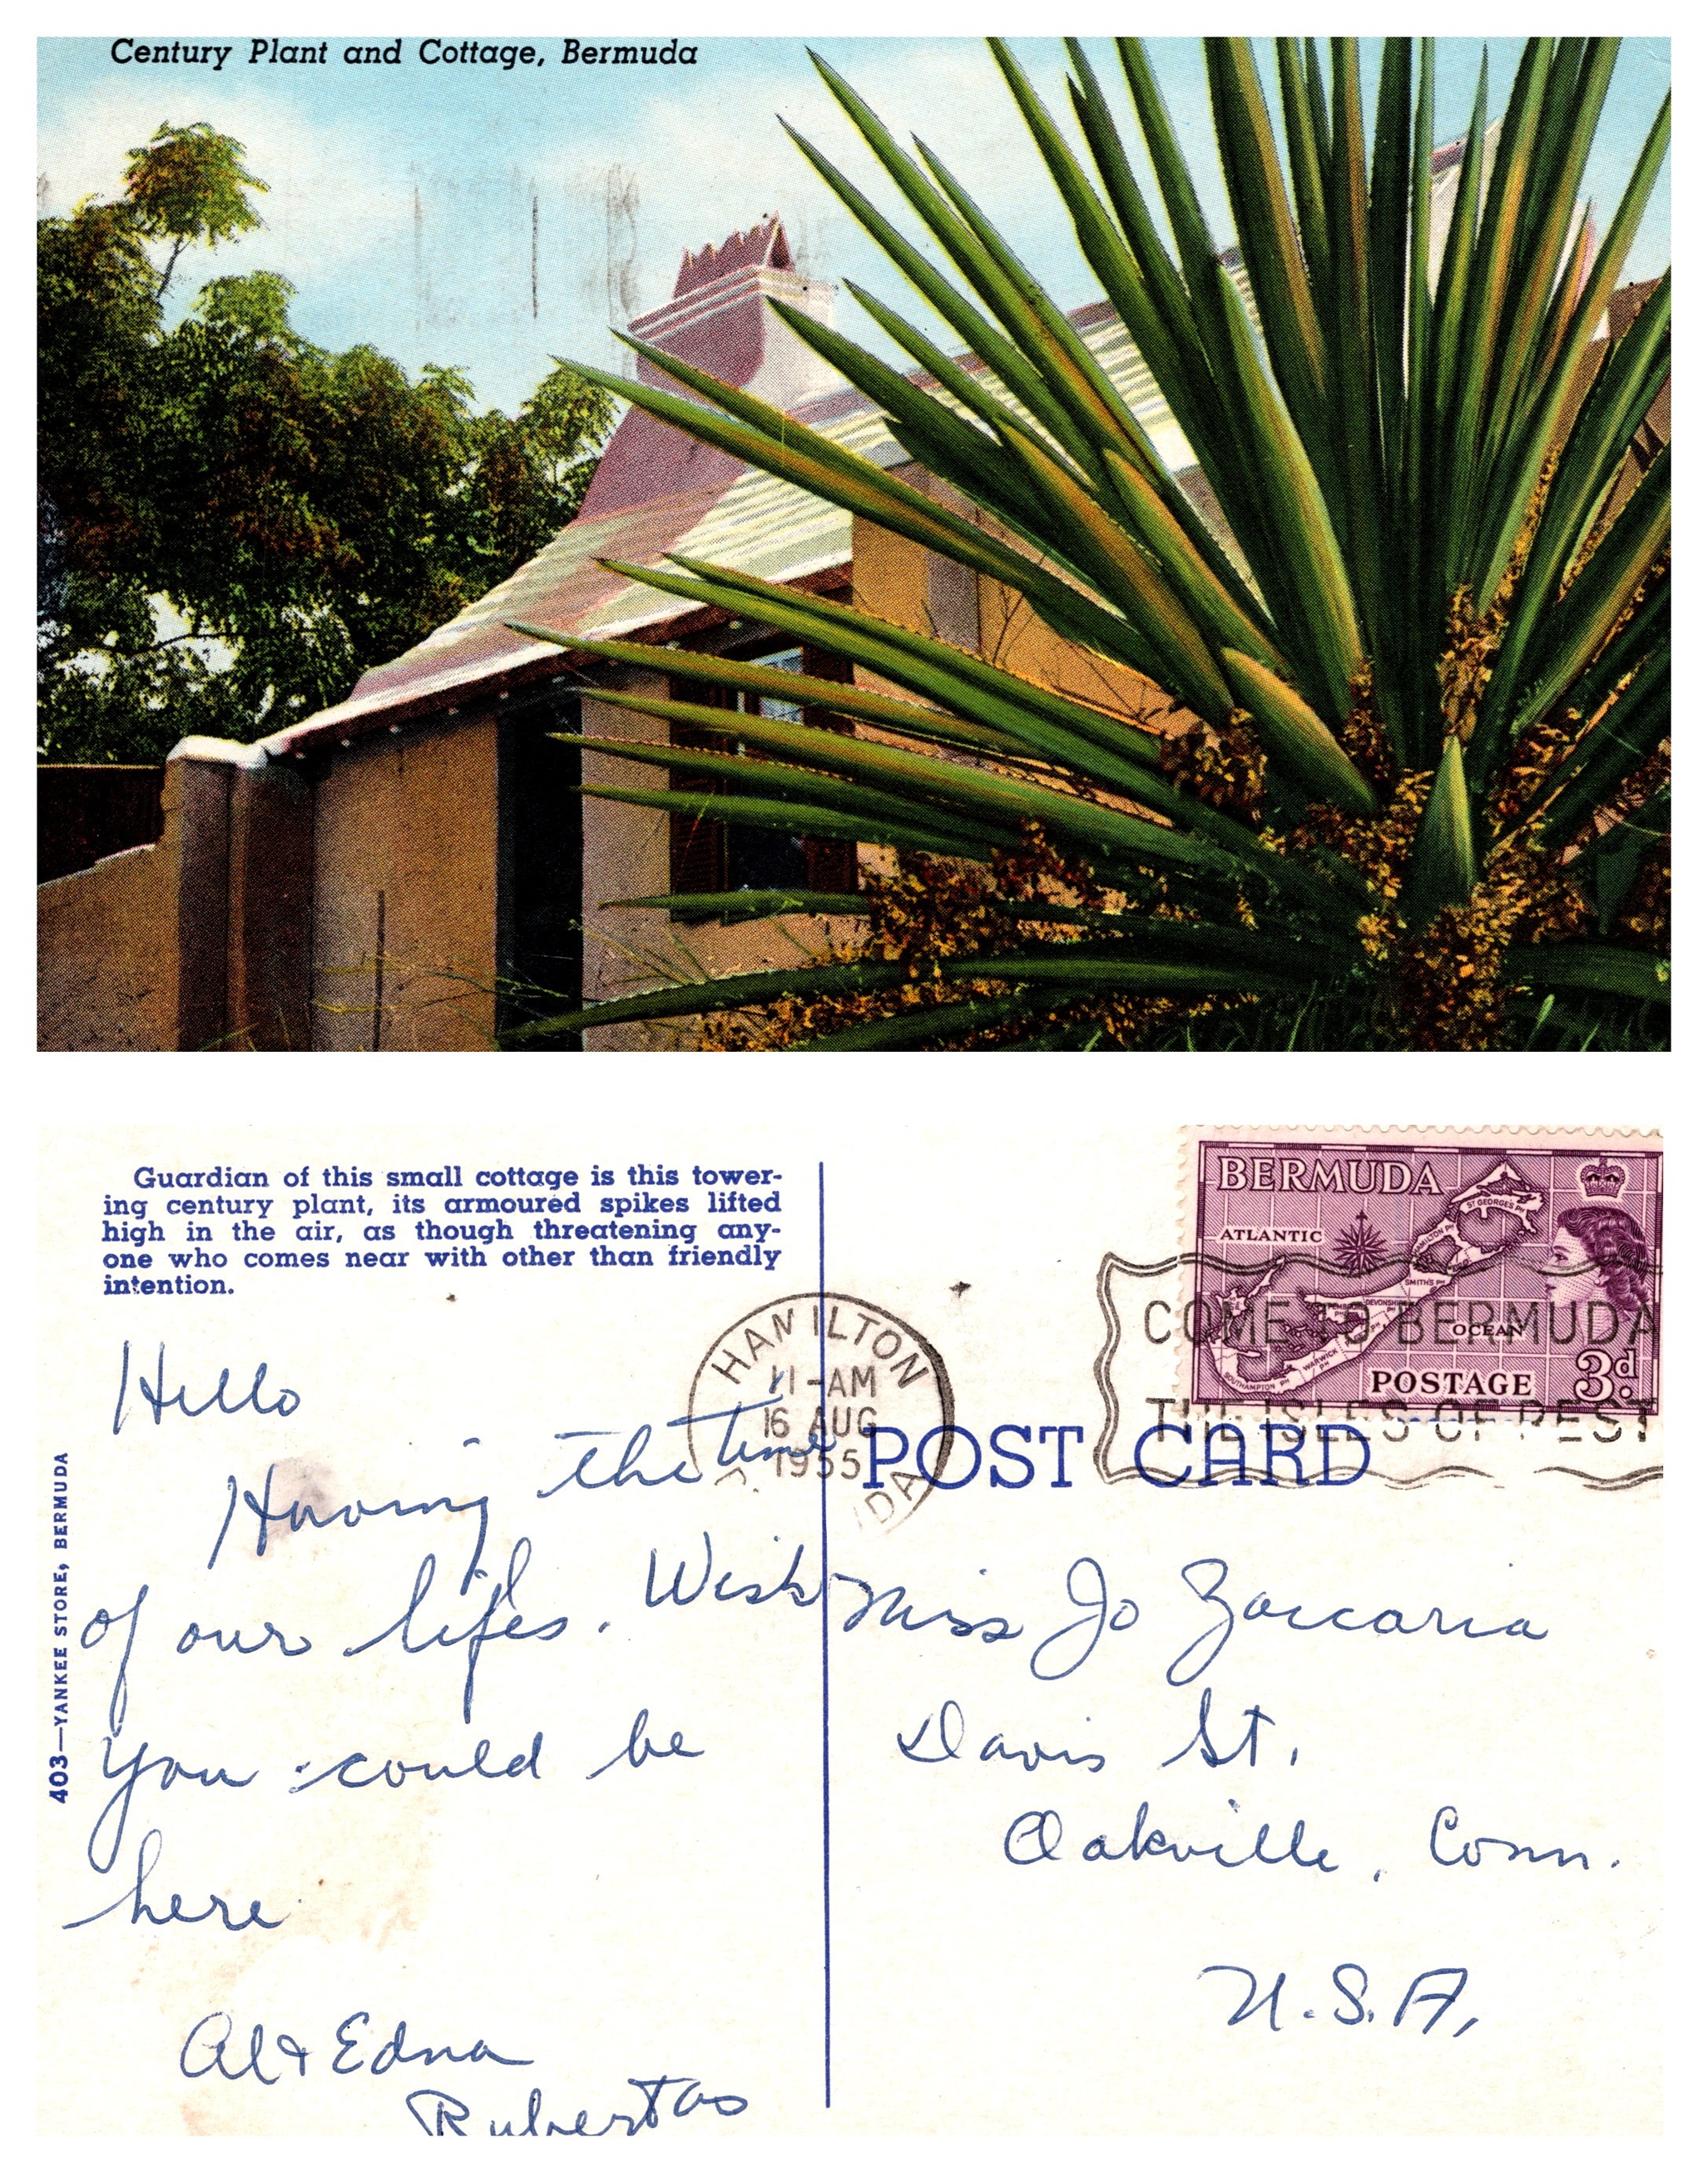 Century Plant and Cottage, Bermuda
Guardian of this small cottage is this tower-
ing century plant, its armoured spikes lifted
high in the air, as though threatening any-
one who comes near with other than friendly
intention.
403—YANKEE STORE, BERMUDA
Hello
Having the time
of our lifes. Wish
you could be
here
Al & Edna
Rubertos
HAMILTON
11-AM
16 AUG
1955
DA
POST CARD
BERMUDA
ATLANTIC
ST GEORGE'S PH
HAMILTON PH
SMITH'S PH
DEVONSHIRE
WARWICK PH
SOUTHAMPTON PH
OCEAN
POSTAGE
3d.
COME TO BERMUDA
THE ISLES OF REST
Miss Jo Zaccaria
Davis St.
Oakville, Conn.
U.S.A,